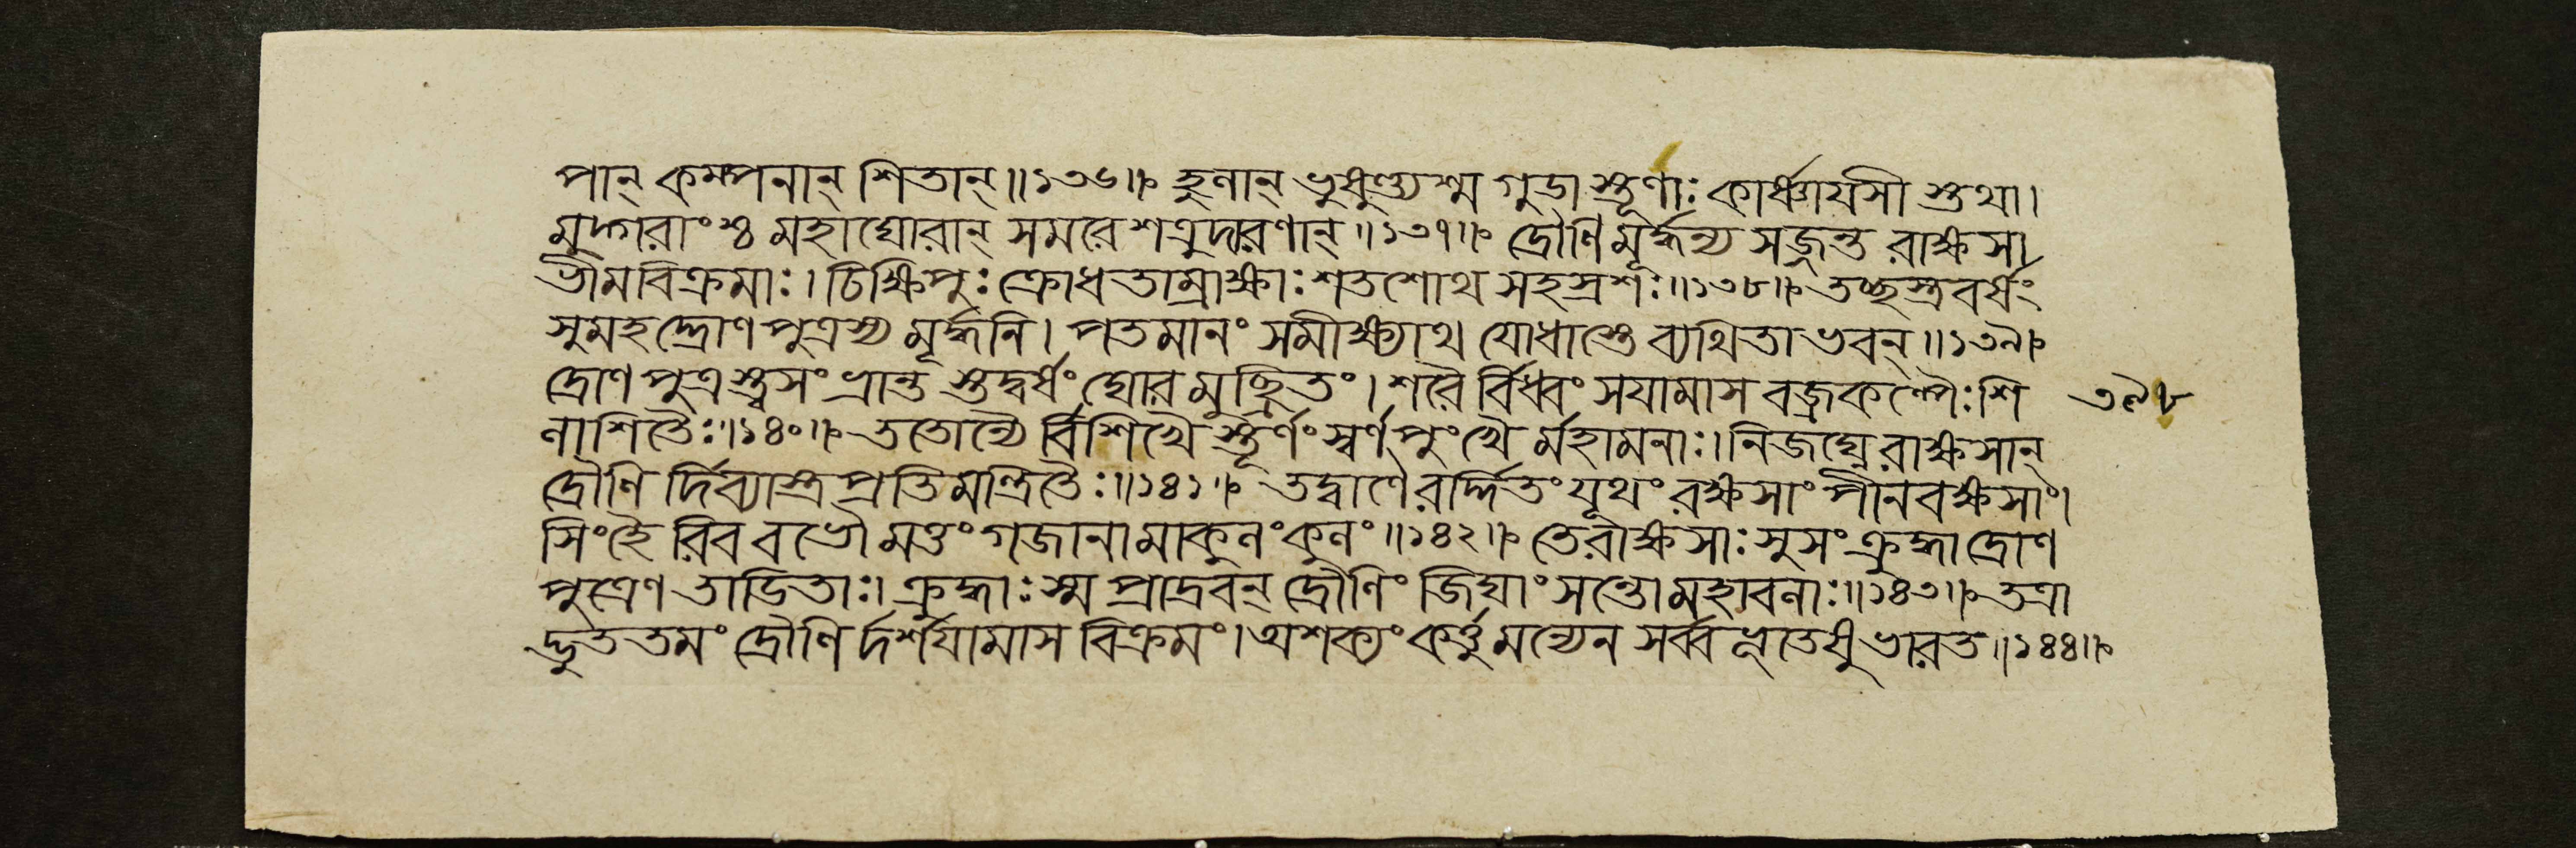 পান্ কম্পনান্ শিতান্॥১৩৬॥ হুনান্ ভুষুণ্ড্যশ্ম গুডা স্থূণাঃ কার্ষ্ণায়সী স্তথা।
মুদ্গরাংশ্চ মহাঘোরান্ সমরে শত্রুদারণান্॥১৩৭॥ দ্রৌণি মূর্দ্ধন্য সজ্জন্ত রাক্ষসা
ভীমবিক্রমাঃ। চিক্ষিপুঃ ক্রোধতাম্রাক্ষাঃ শতশোথ সহস্রশঃ॥১৩৮॥ তচ্ছস্ত্রবর্ষং
সুমহদ্দ্রোণ পুত্রস্য মূর্দ্ধনি। পতমানং সমীক্ষ্যাথ যোধাস্তে ব্যথিতা ভবন্॥১৩৯॥
দ্রোণ পুত্রস্ত্বসং ভ্রান্ত স্তদ্বর্ষং ঘোর মুচ্ছ্রিতং। শরৈ র্বিধ্বংসযামাস বজ্রকল্পৈঃ শি
নাশিতৈঃ॥১৪০॥ ততোন্যৈ র্বিশিখৈ স্তূর্ণং স্বর্ণপুংখৈ র্মহামনাঃ। নিজঘ্নে রাক্ষসান্
দ্রৌণি র্দিব্যাস্ত্র প্রতিমন্ত্রিতৈঃ॥১৪১॥ তদ্বাণৈ রর্দ্দিতং যূথং রক্ষসাং পীনবক্ষসাং।
সিংহৈ রিব বভৌ মত্তং গজানা মাকুনং কুনং॥১৪২॥ তে রাক্ষসাঃ সুসং ক্রুদ্ধা দ্রোণ
পুত্রেণ তাডিতাঃ। ক্রুদ্ধাঃ স্ম প্রাদ্রবন্ দ্রৌণিং জিঘাংসন্তো মহাবনাঃ॥১৪৩॥ তত্রা
দ্ভুততমং দ্রৌণি র্দর্শযামাস বিক্রমং। অশক্যং কর্ত্তু মন্যেন সর্ব্বভূতেষু ভারত॥১৪৪॥
৩৯৮